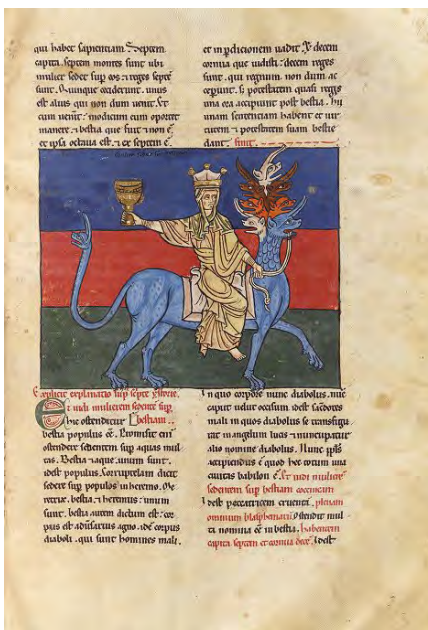 qui habet sapientiam. Septem
capita. septem montes sunt ubi
mulier sedet sup eos. ⁊ reges septē
sunt. Quinque ceciderunt. unus
est alius qui non dum uenit. Et
cum uenit. modicum eum oportet
manere. ⁊ bestia que fuit ⁊ non ē
et ipsa octaua est. ⁊ ex septem ē.
et in pdicionem uadit. Et decem
cornua que uidisti. decem reges
sunt. qui regnum non dum ac
ceperunt. potestatem quasi reges
una ora accipiunt post bestiā. hii
unam sententiam habent et uir
tutem ⁊ potestatem suam bestie
dant. finit
Explicit explanatio sup scpte ystorie.
Et uidi mulierem sedentē sup
hic ostenditur bestiam.
bestia populus ē. Promisit eni
ostendere sedentem sup aquas mul
tas. Bestia ⁊ aque unum sunt.
idest populus. Corruptelam dicit
sedere sup populos in heremo. Me
retrix. bestia. ⁊ heremus unum
sunt. bestia autem dictum est cor
pus est aduersarius agno. idē corpus
diaboli. qui sunt homines mali.
In quo corpore nunc diabolus. nūc
caput uidet occisum. idest sacerdotes
mali in quos diabolus se transfigu
rat in angelum lucis ⁊ nuncupatur
alio nomine diabolus. Nunc ipse
accipiendus ē quod hec totum una
ciuitas babilon ē. Et uidi mulierē
sedentem sup bestiam coccineam
idest peccatricem cruentā. plenam
ominum blasphemiarū. Ostendit mul
ta nomina eē in bestia. habentem
capita septem et cornua decē. idest